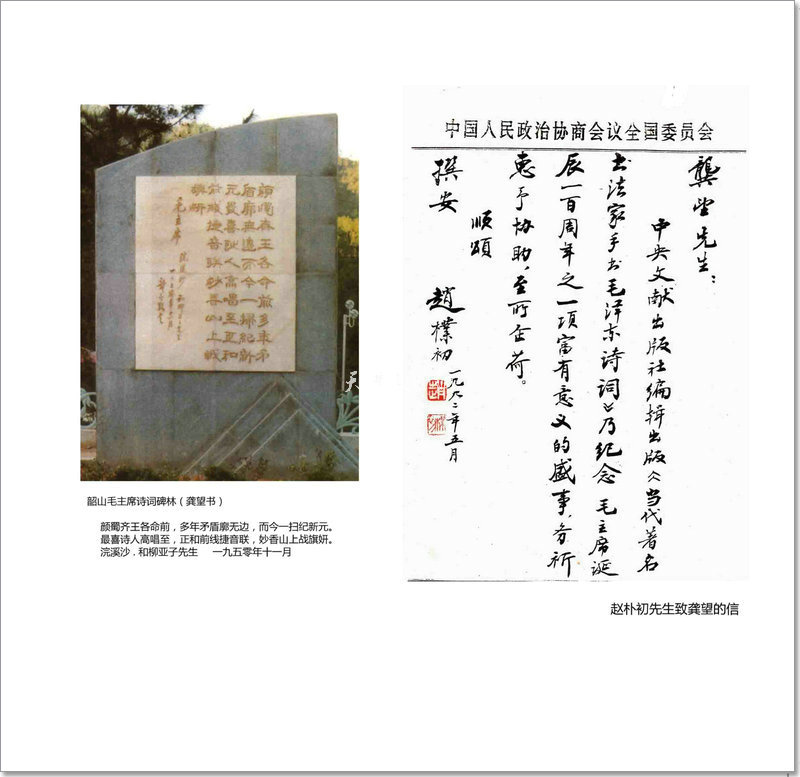 顏斶齊王各命前多年矛
盾廓無邊而今一掃紀新
元最喜詩人高唱至正和
前線捷音聯妙香山上戰
旗妍
毛主席
韶山毛主席诗词碑林（龚望书）
颜斶齐王各命前，多年矛盾廓无边，而今一扫纪新元。
最喜诗人高唱至，正和前线捷音联，妙香山上战旗妍。
浣溪沙．和柳亚子先生 一九五零年十一月
中国人民政治协商会议全国委员会
龔望先生：
中央文献出版社编辑出版《当代著名
书法家手书毛泽东诗词》乃纪念 毛主席诞
辰一百周年之一项富有意义的盛事，务祈
惠予协助，至所企荷。
顺颂
撰安
趙樸初 一九九二年五月
赵朴初先生致龚望的信